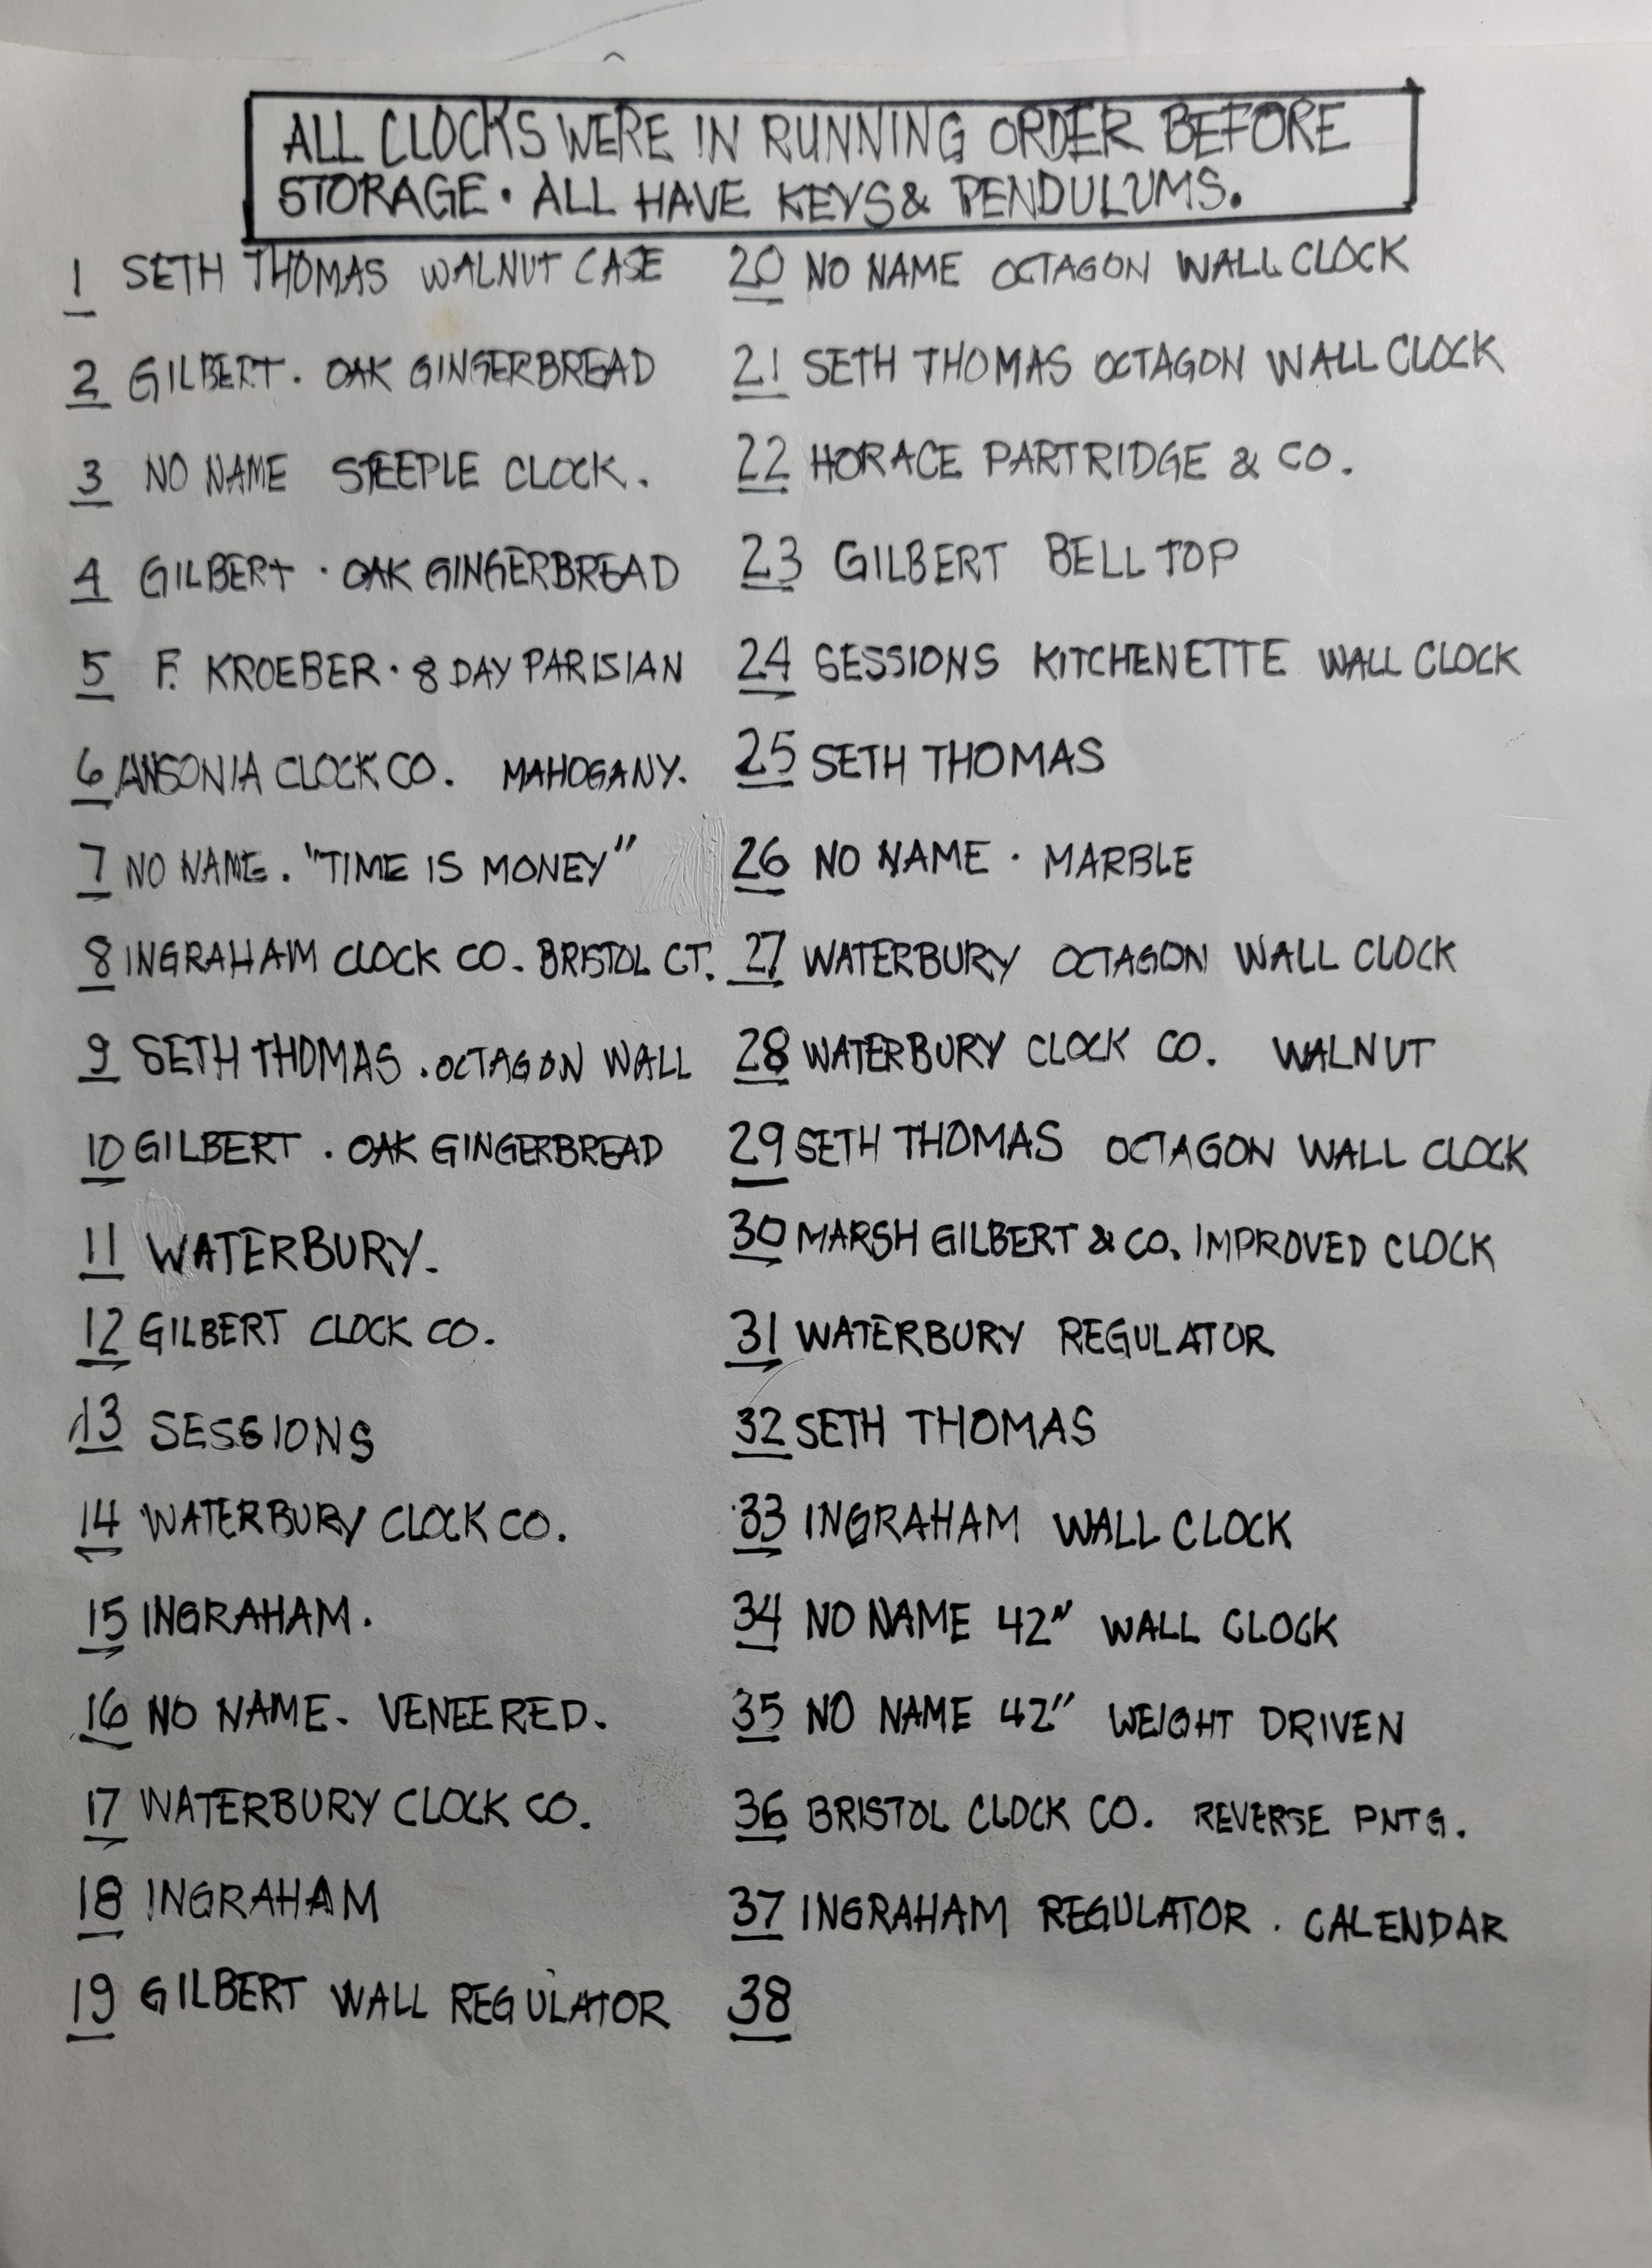 ALL CLOCKS WERE IN RUNNING ORDER BEFORE
STORAGE. ALL HAVE KEYS & PENDULUMS.
1 SETH THOMAS WALNUT CASE
2 GILBERT. OAK GINGERBREAD
3 NO NAME STEEPLE CLOCK.
4 GILBERT. OAK GINGERBREAD
5 F. KROEBER. 8 DAY PARISIAN
6 ANSONIA CLOCK CO. MAHOGANY.
7 NO NAME. "TIME IS MONEY"
8 INGRAHAM CLOCK CO. BRISTOL CT.
9 SETH THOMAS. OCTAGON WALL
10 GILBERT. OAK GINGERBREAD
11 WATERBURY.
12 GILBERT CLOCK CO.
13 SESSIONS
14 WATERBURY CLOCK CO.
15 INGRAHAM.
16 NO NAME. VENEERED.
17 WATERBURY CLOCK CO.
18 INGRAHAM
19 GILBERT WALL REGULATOR
20 NO NAME OCTAGON WALL CLOCK
21 SETH THOMAS OCTAGON WALL CLOCK
22 HORACE PARTRIDGE & CO.
23 GILBERT BELL TOP
24 SESSIONS KITCHENETTE WALL CLOCK
25 SETH THOMAS
26 NO NAME. MARBLE
27 WATERBURY OCTAGON WALL CLOCK
28 WATERBURY CLOCK CO. WALNUT
29 SETH THOMAS OCTAGON WALL CLOCK
30 MARSH GILBERT & CO. IMPROVED CLOCK
31 WATERBURY REGULATOR
32 SETH THOMAS
33 INGRAHAM WALL CLOCK
34 NO NAME 42" WALL CLOCK
35 NO NAME 42" WEIGHT DRIVEN
36 BRISTOL CLOCK CO. REVERSE PNTG.
37 INGRAHAM REGULATOR. CALENDAR
38